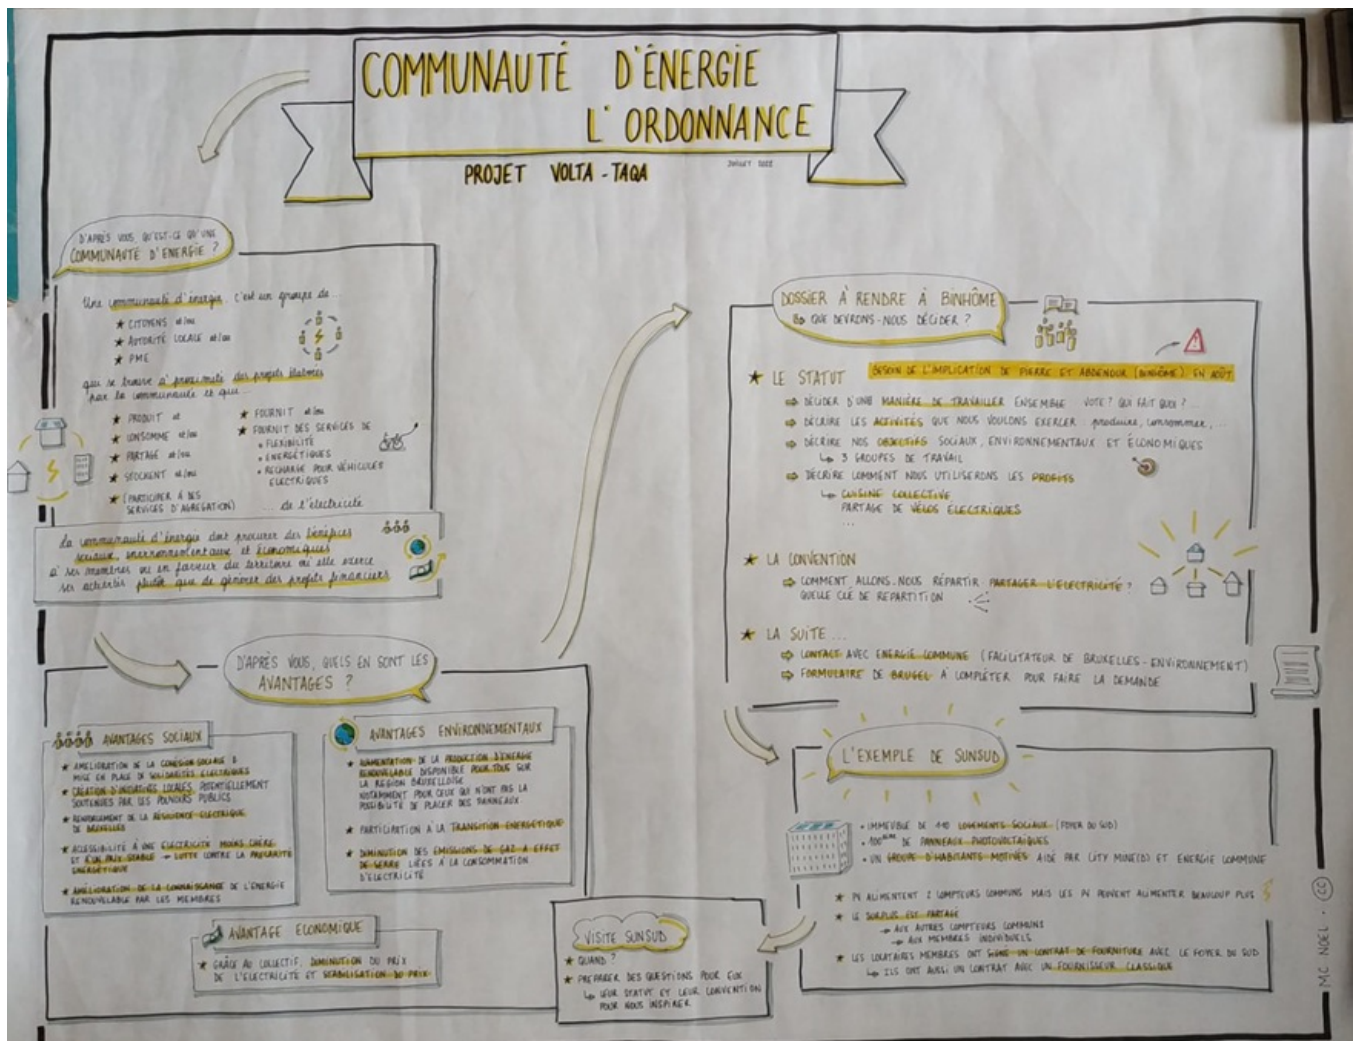 COMMUNAUTÉ D'ÉNERGIE
L'ORDONNANCE
PROJET VOLTA-TAQA
JUILLET 2022
D'APRÈS VOUS, QU'EST-CE QU'UNE
COMMUNAUTÉ D'ENERGIE ?
Une communauté d'énergie, c'est un groupe de...
★ CITOYENS et/ou
★ AUTORITÉ LOCALE et/ou
★ PME
qui se trouve à proximité des projets élaborés
par la communauté et qui...
★ PRODUIT et
★ CONSOMME et/ou
★ PARTAGE et/ou
★ STOCKENT et/ou
★ (PARTICIPER À DES
SERVICES D'AGREGATION)
★ FOURNIT et/ou
★ FOURNIT DES SERVICES DE
• FLEXIBILITÉ
• ENERGÉTIQUES
• RECHARGE POUR VÉHICULES
ELECTRIQUES
... de l'électricité
La communauté d'énergie doit procurer des bénéfices
sociaux, environnementaux et économiques
à ses membres ou en faveur du territoire où elle exerce
ses activités plutôt que de générer des profits financiers
D'APRÈS VOUS, QUELS EN SONT LES
AVANTAGES ?
AVANTAGES SOCIAUX
★ AMÉLIORATION DE LA COHÉSION SOCIALE &
MISE EN PLACE DE SOLIDARITÉS ELECTRIQUES
★ CRÉATION D'INITIATIVES LOCALES, POTENTIELLEMENT
SOUTENUES PAR LES POUVOIRS PUBLICS
★ RENFORCEMENT DE LA RÉSILIENCE ELECTRIQUE
DE BRUXELLES
★ ACCESSIBILITÉ À UNE ELECTRICITÉ MOINS CHÈRE
ET À UN PRIX STABLE → LUTTE CONTRE LA PRÉCARITÉ
ENERGÉTIQUE
★ AMÉLIORATION DE LA CONNAISSANCE DE L'ENERGIE
RENOUVELABLE PAR LES MEMBRES
AVANTAGES ENVIRONNEMENTAUX
★ AUGMENTATION DE LA PRODUCTION D'ENERGIE
RENOUVELABLE DISPONIBLE POUR TOUS SUR
LA REGION BRUXELLOISE
NOTAMMENT POUR CEUX QUI N'ONT PAS LA
POSSIBILITÉ DE PLACER DES PANNEAUX
★ PARTICIPATION À LA TRANSITION ENERGÉTIQUE
★ DIMINUTION DES EMISSIONS DE GAZ À EFFET
DE SERRE LIÉES À LA CONSOMMATION
D'ELECTRICITÉ
AVANTAGE ECONOMIQUE
★ GRÂCE AU COLLECTIF, DIMINUTION DU PRIX
DE L'ÉLECTRICITÉ ET STABILISATION DU PRIX
DOSSIER À RENDRE À BINHÔME
↳ QUE DEVRONS-NOUS DÉCIDER ?
★ LE STATUT
BESOIN DE L'IMPLICATION DE PIERRE ET ABDENOUR (BINHÔME) EN AOÛT
⇨ DÉCIDER D'UNE MANIÈRE DE TRAVAILLER ENSEMBLE VOTE ? QUI FAIT QUOI ?...
⇨ DÉCRIRE LES ACTIVITÉS QUE NOUS VOULONS EXERCER : produire, consommer, ...
⇨ DÉCRIRE NOS OBJECTIFS SOCIAUX, ENVIRONNEMENTAUX ET ÉCONOMIQUES
↳ 3 GROUPES DE TRAVAIL
⇨ DÉCRIRE COMMENT NOUS UTILISERONS LES PROFITS
↳ CUISINE COLLECTIVE
PARTAGE DE VÉLOS ELECTRIQUES
...
★ LA CONVENTION
⇨ COMMENT ALLONS-NOUS RÉPARTIR PARTAGER L'ELECTRICITÉ ?
QUELLE CLÉ DE REPARTITION
★ LA SUITE ...
⇨ CONTACT AVEC ENERGIE COMMUNE (FACILITATEUR DE BRUXELLES-ENVIRONNEMENT)
⇨ FORMULAIRE DE BRUGEL À COMPLÉTER POUR FAIRE LA DEMANDE
L'EXEMPLE DE SUNSUD
• IMMEUBLE DE LOGEMENTS SOCIAUX (FOYER DU SUD)
• DE PANNEAUX PHOTOVOLTAÏQUES
• UN GROUPE D'HABITANTS MOTIVÉS AIDÉ PAR CITY MINE(D) ET ENERGIE COMMUNE
★ PV ALIMENTENT 2 COMPTEURS COMMUNS MAIS LES PV PEUVENT ALIMENTER BEAUCOUP PLUS
★ LE SURPLUS EST PARTAGÉ
→ AUX AUTRES COMPTEURS COMMUNS
→ AUX MEMBRES INDIVIDUELS
★ LES LOCATAIRES MEMBRES ONT SIGNÉ UN CONTRAT DE FOURNITURE AVEC LE FOYER DU SUD
↳ ILS ONT AUSSI UN CONTRAT AVEC UN FOURNISSEUR CLASSIQUE
VISITE SUNSUD
★ QUAND ?
★ PREPARER DES QUESTIONS POUR EUX
↳ LEUR STATUT ET LEUR CONVENTION
POUR NOUS INSPIRER
MC NOEL · CC